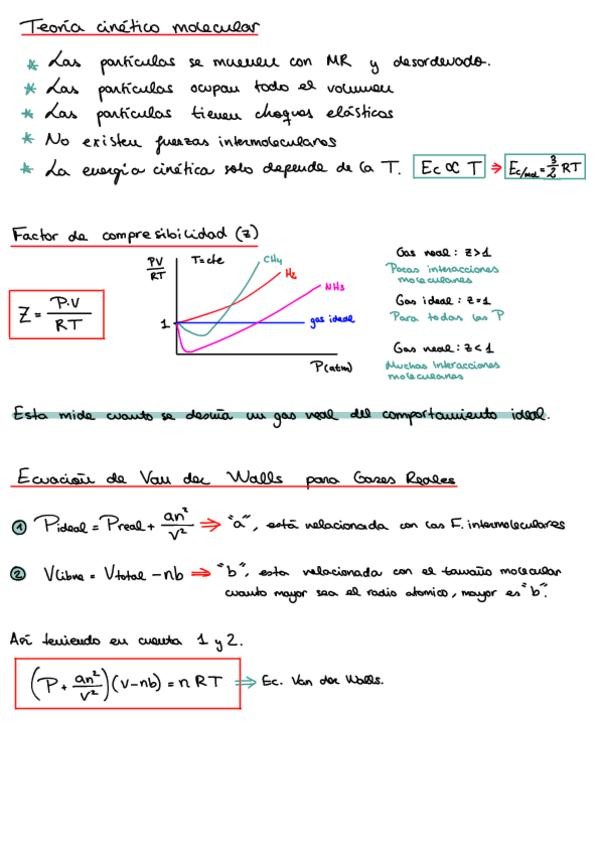 Teoría cinético molecular
* Las partículas se mueven con MR y desordenado.
* Las partículas ocupan todo el volumen
* Las partículas tienen choques elásticos
* No existen fuerzas intermoleculares
* La energía cinética solo depende de la T. Ec ∝ T ⇒ Ec/mol = 3/2 RT
Factor de compresibilidad (z)
Z = P.V / RT
PV / RT
T=cte
CH4
H2
NH3
1
gas ideal
P(atm)
Gas real: z>1
Pocas interacciones
moleculares
Gas ideal: z=1
Para todas las P
Gas real: z<1
Muchas Interacciones
moleculares
Esta mide cuanto se desvía un gas real del comportamiento ideal.
Ecuación de Van der Walls para Gases Reales
1 Pideal = Preal + an²/v² ⇒ "a", está relacionada con las F. intermoleculares
2 Vlibre = Vtotal - nb ⇒ "b", esta relacionada con el tamaño molecular
cuanto mayor sea el radio atomico, mayor es "b".
Así teniendo en cuenta 1 y 2.
(P + an²/v²)(v-nb) = n RT ⇒ Ec. Van der Walls.